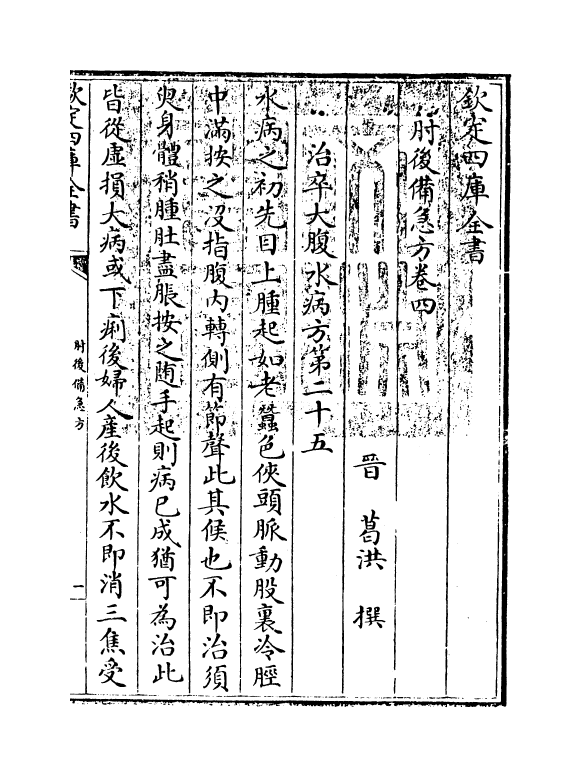 欽定四庫全書
肘後備急方卷四
晉　葛洪　撰
治卒大腹水病方第二十五
水病之初先目上腫起如老蠶色俠頭脈動股裏冷脛
中滿按之沒指腹內轉側有節聲此其候也不即治須
臾身體稍腫肚盡脹按之隨手起則病已成猶可為治此
皆從虛損大病或下痢後婦人產後飲水不即消三焦受
欽定四庫全書
肘後備急方
一